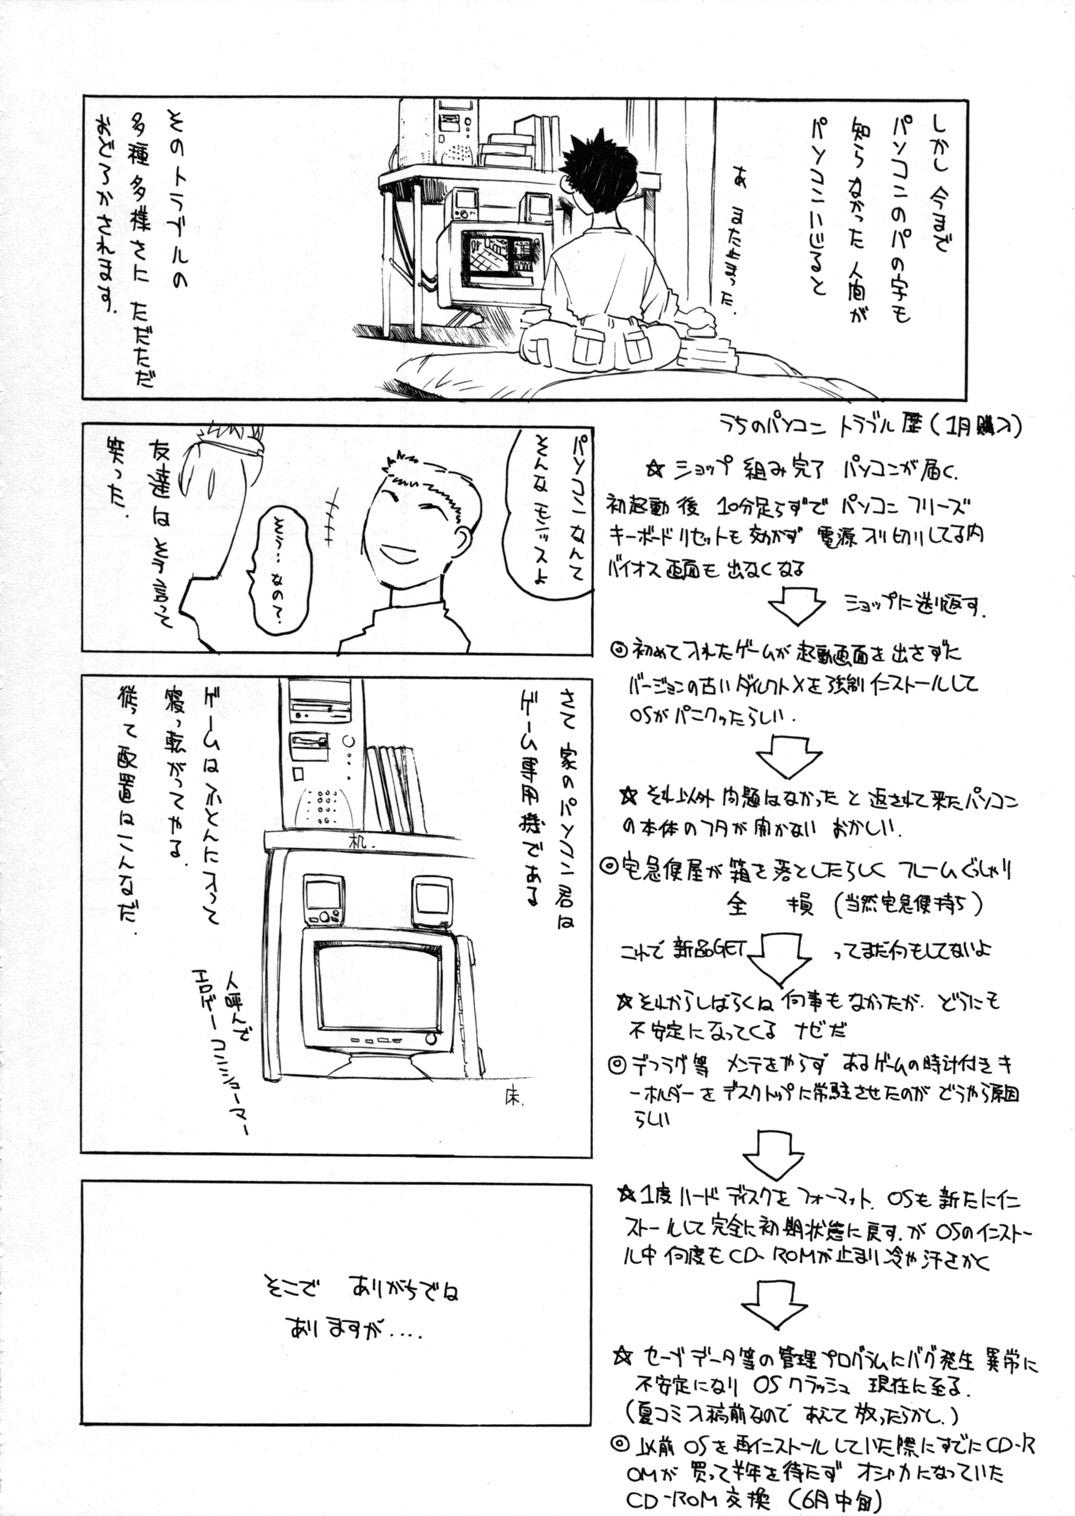 しかし 今まで
パソコンのパの字も
知らなかった 人間が
パソコンいじると
あ また止まった.
そのトラブルの
多種多様さに ただただ
おどろかされます.
パソコンなんて
そんなモンッスよ
そう…なの?
友達は そう言って
笑った.
さて 家のパソコン君は
ゲーム専用機である
ゲームはふとんに入って
寝っ転がってやる.
従って配置はこんなだ.
机.
床.
人呼んで
エロゲーコンショーマー
そこで ありがちでは
ありますが....
うちのパソコン トラブル歴 (1月購入)
☆ ショップ 組み完了 パソコンが届く.
初起動後 10分足らずで パソコン フリーズ
キーボードリセットも効かず 電源入り切りしてる内
バイオス画面も 出なくなる
ショップに送り返す.
◎ 初めて入れたゲームが 起動画面を出さずに
バージョンの古いダイレクトXを強制インストールして
OSがパニクッたらしい.
☆ それ以外 問題はなかった と 返されて来たパソコン
の本体のフタが開かない おかしい.
◎ 宅急便屋が箱を落としたらしく フレームぐしゃり
全 損 (当然宅急便持ち)
これで 新品GET ってまだ何もしてないよ
☆ それからしばらくは 何事もなかったが. どうにも
不安定になってくる ナゼだ
◎ デフラグ等 メンテをやらず あるゲームの時計付きキ
ーホルダーをデスクトップに常駐させたのが どうやら原因
らしい
☆ 1度ハードディスクを フォーマット. OSも新たにイン
ストールして完全に初期状態に戻す. が OSのインストー
ル中 何度もCD-ROMが止まり冷や汗さかく
☆ セーブデータ等の管理プログラムにバグ発生 異常に
不安定になり OSクラッシュ 現在に至る.
(夏コミ入稿前なので あえて 放ったらかし.)
◎ 以前 OSを再インストールしていた際にすでにCD-R
OMが 買って半年を待たず オシャカになっていた
CD-ROM 交換 (6月中旬)